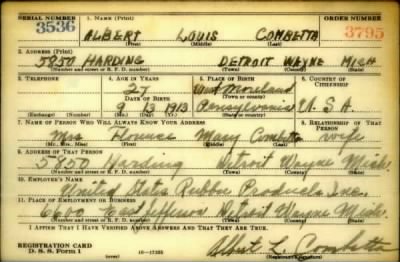 SERIAL NUMBER 1. NAME (Print) ORDER NUMBER
3536 ALBERT LOUIS COMBETTA 3795
(First) (Middle) (Last)
2. ADDRESS (Print)
5850 HARDING DETROIT WAYNE MICH
(Number and street or R. F. D. number) (Town) (County) (State)
3. TELEPHONE 4. AGE IN YEARS 5. PLACE OF BIRTH 6. COUNTRY OF CITIZENSHIP
27 Westmoreland
DATE OF BIRTH (Town or county)
9 13 1913 Pennsylvania U. S. A.
(Exchange) (Number) (Mo.) (Day) (Yr.) (State or country)
7. NAME OF PERSON WHO WILL ALWAYS KNOW YOUR ADDRESS 8. RELATIONSHIP OF THAT PERSON
Mrs Florence Mary Combetta wife
(Mr., Mrs., Miss) (First) (Middle) (Last)
9. ADDRESS OF THAT PERSON
5850 Harding Detroit Wayne Mich.
(Number and street or R. F. D. number) (Town) (County) (State)
10. EMPLOYER'S NAME
United States Rubber Products Inc.
11. PLACE OF EMPLOYMENT OR BUSINESS
6600 East Jefferson Detroit Wayne Mich.
(Number and street or R. F. D. number) (Town) (County) (State)
I AFFIRM THAT I HAVE VERIFIED ABOVE ANSWERS AND THAT THEY ARE TRUE.
REGISTRATION CARD
D. S. S. Form 1 16—17105 Albert L. Combetta
(Registrant's signature)